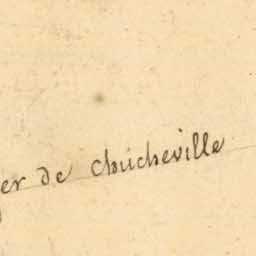 er de Chucheville